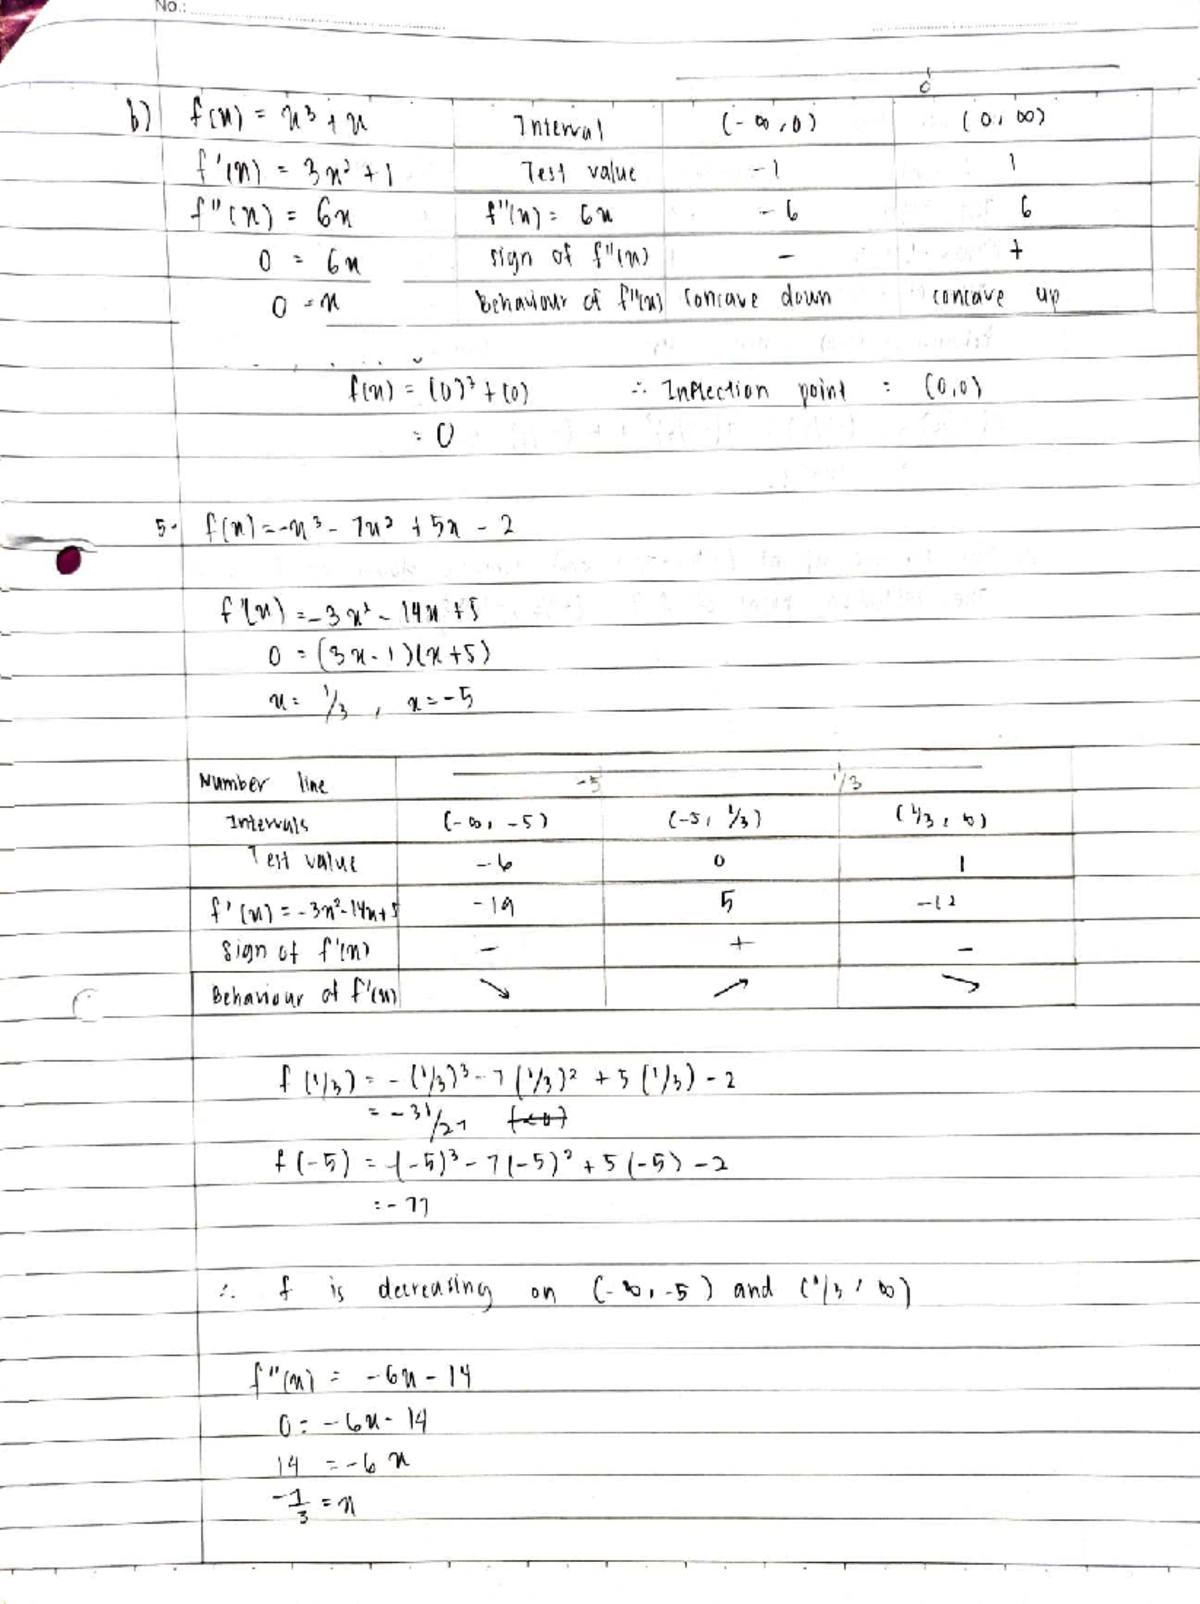 No.:
0
b) f(x) = x³ + x Interval (-∞,0) (0,∞)
f'(x) = 3x² + 1 Test value -1 1
f"(x) = 6x f"(x) = 6x -6 6
0 = 6x sign of f"(x) - +
0 = x Behaviour of f"(x) concave down concave up
f(x) = (0)³ + (0) ∴ Inflection point : (0,0)
= 0
5. f(x) = -x³ - 7x² + 5x - 2
f'(x) = -3x² - 14x + 5
0 = (3x - 1)(x + 5)
x = 1/3 , x = -5
Number line -5 1/3
Intervals (-∞, -5) (-5, 1/3) (1/3, ∞)
Test value -6 0 1
f'(x) = -3x² - 14x + 5 -19 5 -12
Sign of f'(x) - + -
Behaviour of f'(x) ↘ ↗ ↘
f(1/3) = -(1/3)³ - 7(1/3)² + 5(1/3) - 2
= -31/27
f(-5) = -(-5)³ - 7(-5)² + 5(-5) - 2
= -77
∴ f is decreasing on (-∞, -5) and (1/3, ∞)
f"(x) = -6x - 14
0 = -6x - 14
14 = -6x
-7/3 = x